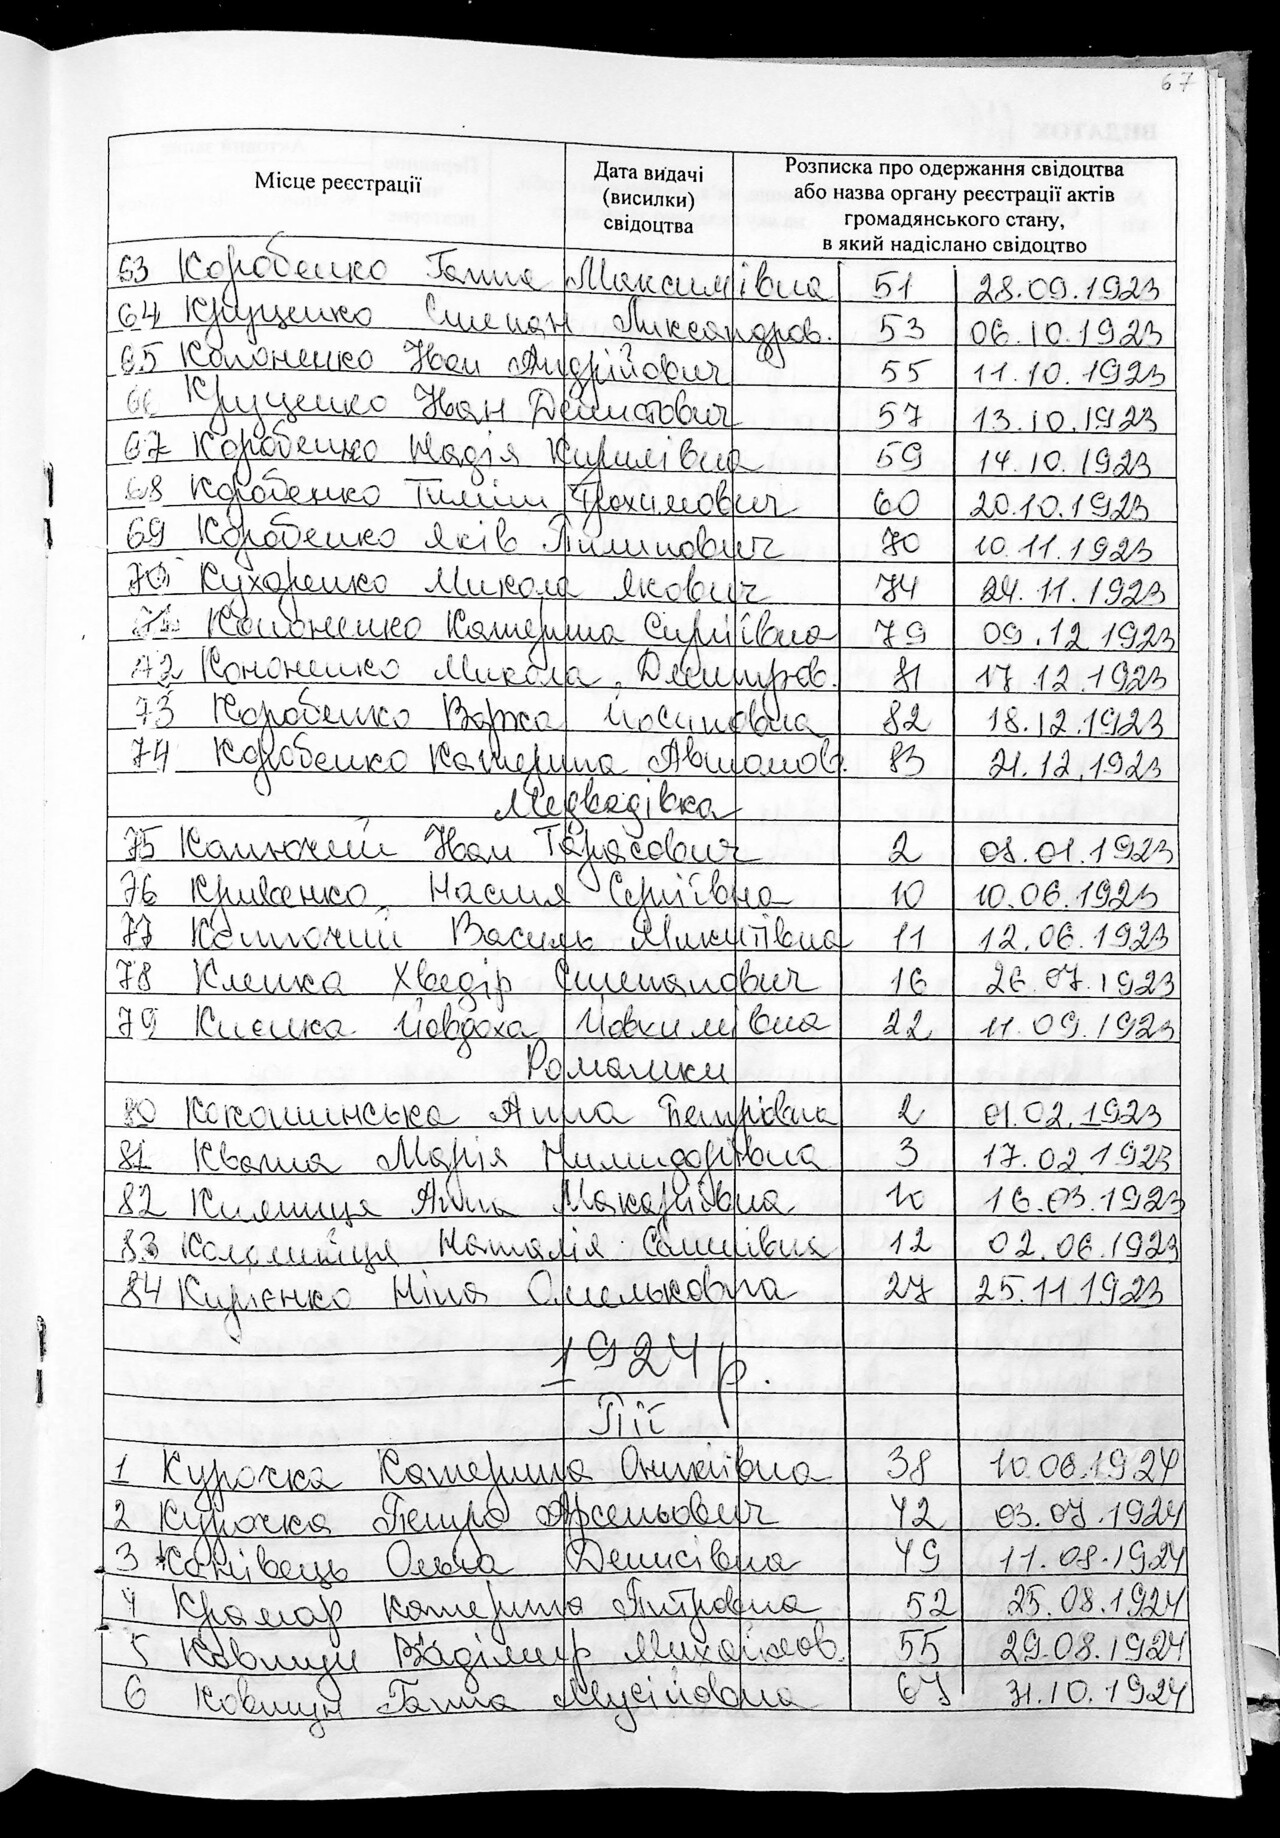 67
Місце реєстрації
Дата видачі
(висилки)
свідоцтва
Розписка про одержання свідоцтва
або назва органу реєстрації актів
громадянського стану,
в який надіслано свідоцтво
63 Коробенко Ганна Максимівна 51 28.09.1923
64 Круценко Степан Лиександров. 53 06.10.1923
65 Кононенко Іван Андрійович 55 11.10.1923
66 Круценко Іван Демитович 57 13.10.1923
67 Коробенко Надія Кирилівна 59 14.10.1923
68 Коробенко Тиміш Трохимович 60 20.10.1923
69 Коробенко Яків Пилипович 70 10.11.1923
70 Кухаренко Микола Якович 74 24.11.1923
71 Кононенко Катерина Сергіївна 79 09.12.1923
72 Кононенко Микола Дмитров. 81 17.12.1923
73 Коробенко Варка Йосиповна 82 18.12.1923
74 Коробенко Катерина Автомов. 83 21.12.1923
Медведівка
75 Калючий Іван Тарасович 2 08.01.1923
76 Настя Сергіївна 10 10.06.1923
77 Василь Микитівна 11 12.06.1923
78 Клепка Хведір Степанович 16 26.07.1923
79 Йовдоха Йовхимівна 22 11.09.1923
Романки
80 Кокошинська Анна Петрівна 2 01.02.1923
81 Кваша Марія 3 17.02.1923
82 Кияниця Анна Макаріївна 10 16.03.1923
83 Коломийця Наталія 12 02.06.1923
84 Кирієнко Ніна Омельковна 27 25.11.1923
1924 р.
Пії
1 Курочка Катерина Оникіївна 38 10.06.1924
2 Курочка Петро Арсеньович 42 03.07.1924
3 Канівець Ольга Денисівна 49 11.08.1924
4 Крамар Катерина Питровна 52 25.08.1924
5 Ковтун Владімир Михайлов. 55 29.08.1924
6 Ковтун Ганна Мусійовна 67 31.10.1924